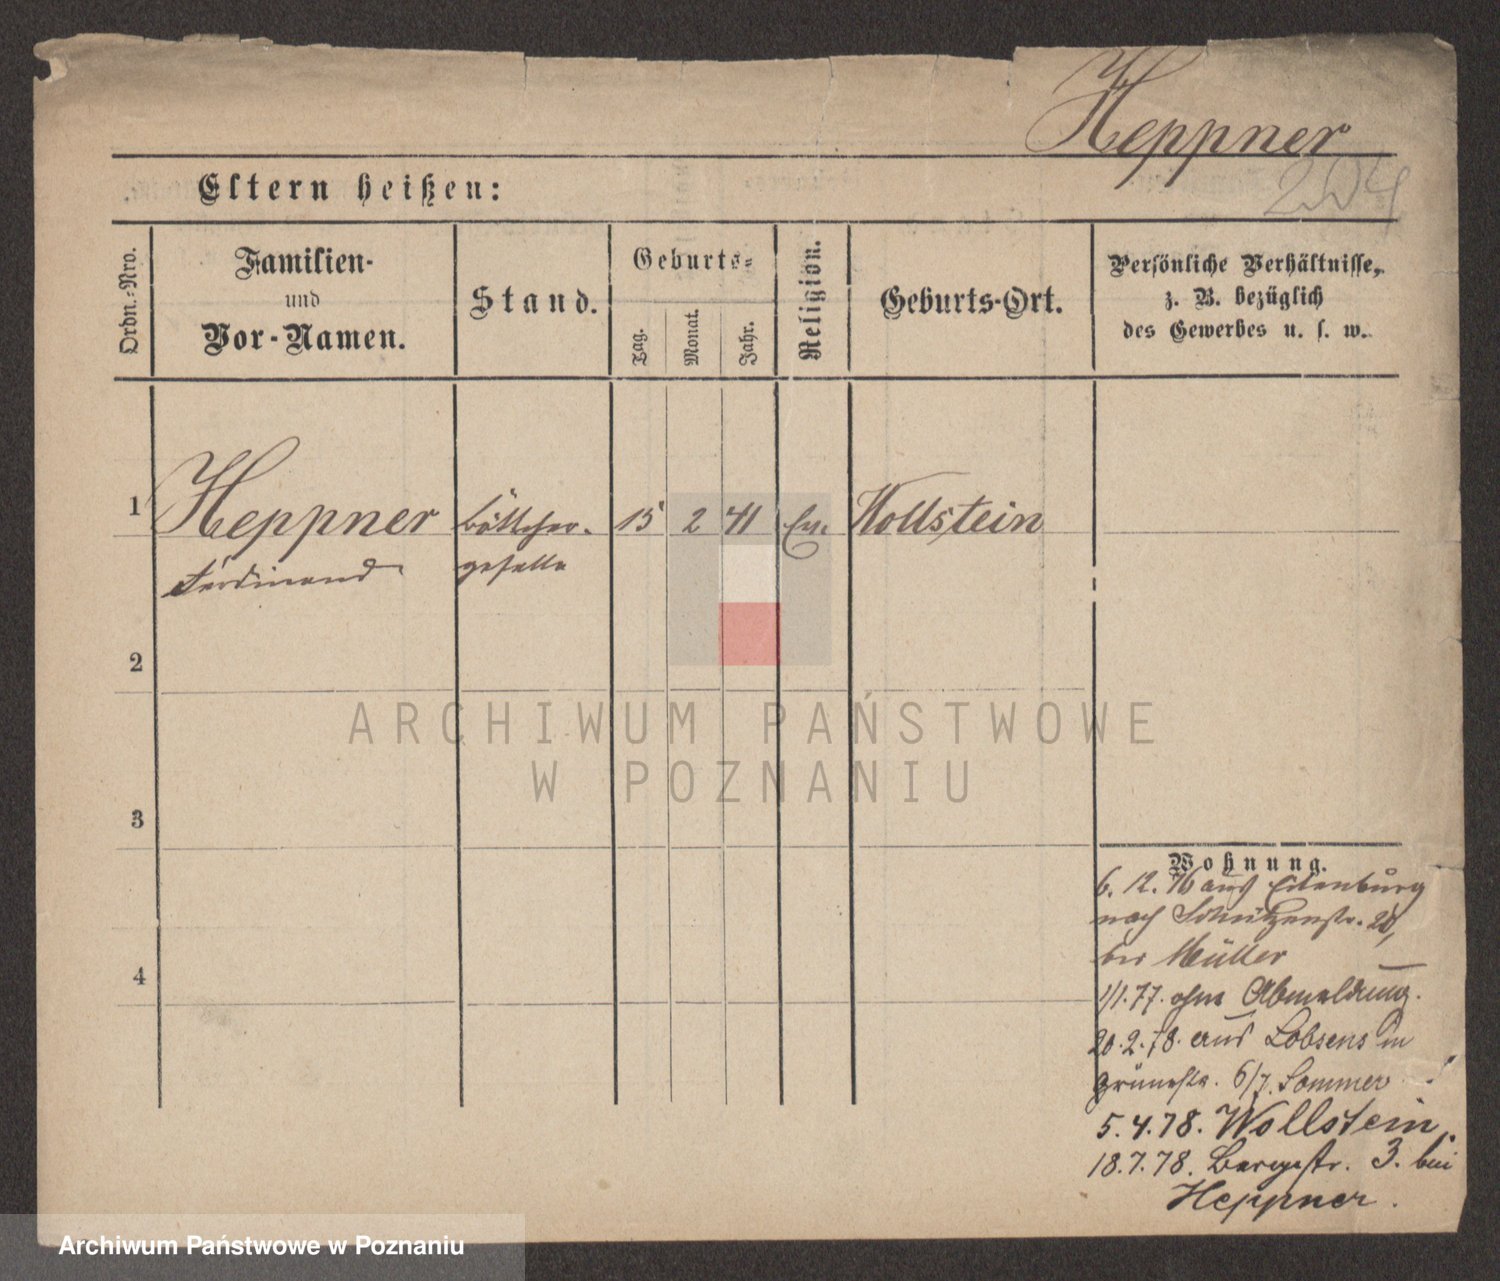 Heppner
204
Eltern heißen:
Ordn.-Nro.
Familien-
und
Vor-Namen.
Stand.
Geburts-
Tag.
Monat.
Jahr.
Religion.
Geburts-Ort.
Persönliche Verhältnisse,
z. B. bezüglich
des Gewerbes u. s. w.
1
Heppner
Ferdinand
Böttcher-
geselle
15
2
41
Ev.
Wollstein
2
3
4
Wohnung.
6. 12. 76 aus Eilenburg
nach Schützenstr. 20,
bei Müller
1/1. 77. ohne Abmeldung.
20. 2. 78. aus Lobsens in
Grünestr. 6/7. Sommer
5. 4. 78. Wollstein.
18. 7. 78. Bergstr. 3. bei
Heppner.
ARCHIWUM PAŃSTWOWE
W POZNANIU
Archiwum Państwowe w Poznaniu